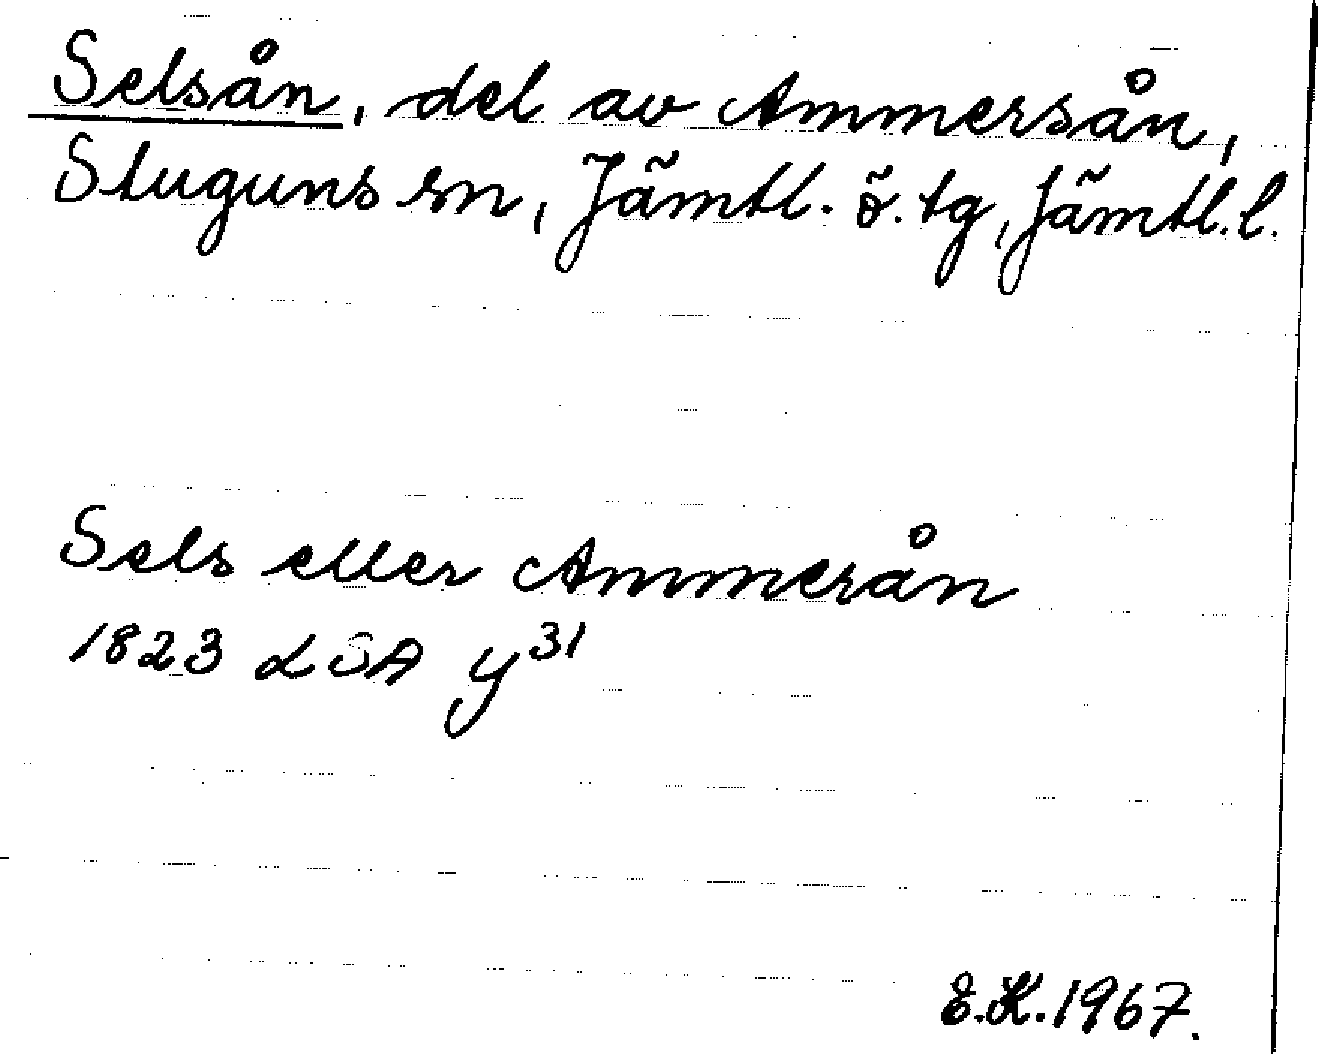 Selsån, del av Ammersån,
Stuguns sn, Jämtl. ö. tg, Jämtl. l.
Sels eller Ammerån
1823 LSA y³¹
E.K. 1967.